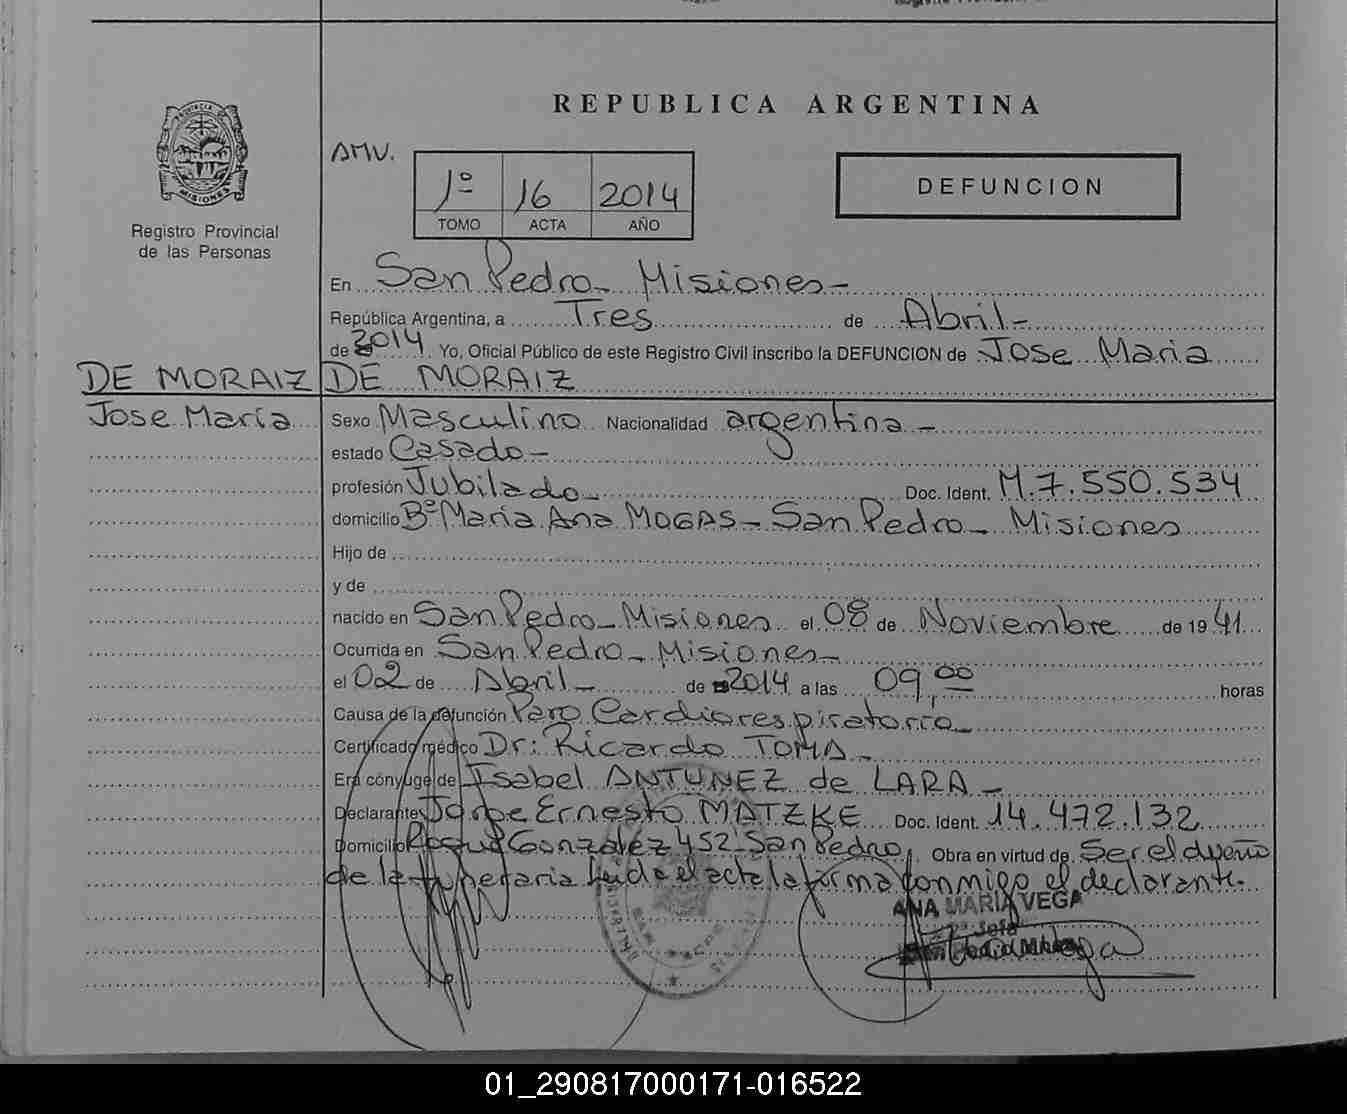 REPUBLICA ARGENTINA
AMV.
1º 16 2014
TOMO ACTA AÑO
DEFUNCION
PROVINCIA DE MISIONES
Registro Provincial
de las Personas
En San Pedro - Misiones -
República Argentina, a Tres de Abril -
de 2014. Yo, Oficial Público de este Registro Civil inscribo la DEFUNCION de Jose Maria
DE MORAIZ DE MORAIZ
Jose Maria Sexo Masculino Nacionalidad argentina -
estado Casado -
profesión Jubilado - Doc. Ident. M.7.550.534
domicilio Bº Maria Ana MOGAS - San Pedro - Misiones
Hijo de
y de
nacido en San Pedro - Misiones el 08 de Noviembre de 1941
Ocurrida en San Pedro - Misiones -
el 02 de Abril - de 2014 a las 09,00 horas
Causa de la defunción Paro Cardiorespiratorio -
Certificado médico Dr: Ricardo TOMA -
Era cónyuge de Isabel ANTUNEZ de LARA -
Declarante Jorge Ernesto MATZKE Doc. Ident. 14.472.132
Domicilio Roque Gonzalez 452 San Pedro Obra en virtud de Ser el dueño
de la funeraria Leida el acta la forma conmigo el declarante.
ANA MARIA VEGA
Jefa
01_290817000171-016522